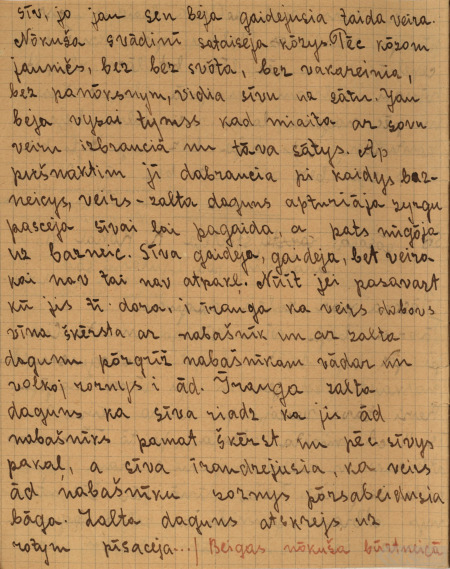 sīv, jo jau sen beja gaidejusia taida veira.
Nōkuša svādinī sataiseja kōzys. Pēc kōzom
jauniēs, bez bez svōta, bez vakareinia,
bez panōksnym, vidia sīvu uz sātu. Jau
beja vysai tymss kad miaita ar sovu
veiru izbraucia nu tāva sātys. Ap
pušnaktim jī dabraucia pi kaidys baz-
neicys, veirs - zalta daguns apturiāja zyrgu
pasceja sīvai lai pagaida, a pats nūgōja
uz bazneic. Sīva gaideja, gaideja, bet veira
kai nav tai nav atpakl. Nūīt jei pasavart
kū jis tī dora, i īrauga ka veirs dabovs
vīna škērsta ar nabašnīk un ar zalta
dagunu pōrgrīž nabašnīkam vādar un
volkoj zornys i ād. Īrauga zalta
daguns ka sīva riadz ka jis ād
nabašnīks pamat škērst un pēc sīvys
pakal, a sīva īraudzejusia, ka veirs
ād nabašnīku zornys pōrsabeidusia
bāga. Zalta daguns atskrejs uz
rotym pīsaceja... | Beigas nōkušā būrtneicā